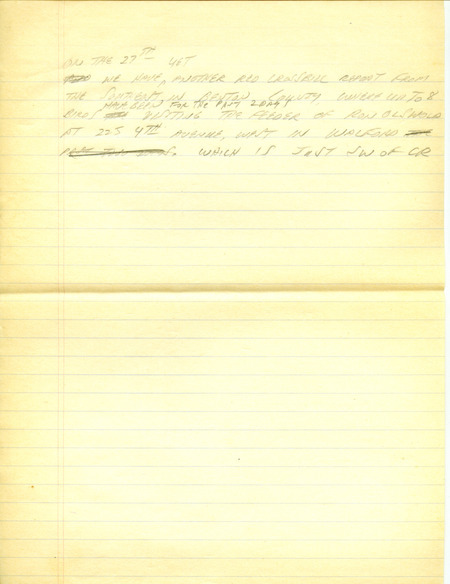 ON THE 27TH YET
WE HAVE, ANOTHER RED CROSSBILL REPORT FROM
THE IN BENTON COUNTY WHERE UP TO 8
HAVE BEEN FOR THE PAST 2 DAYS
BIRDS VISITING THE FEEDER OF RON OLSWOLD
AT 225 4TH AVENUE, WEST IN WALFORD
WHICH IS JUST SW OF CR